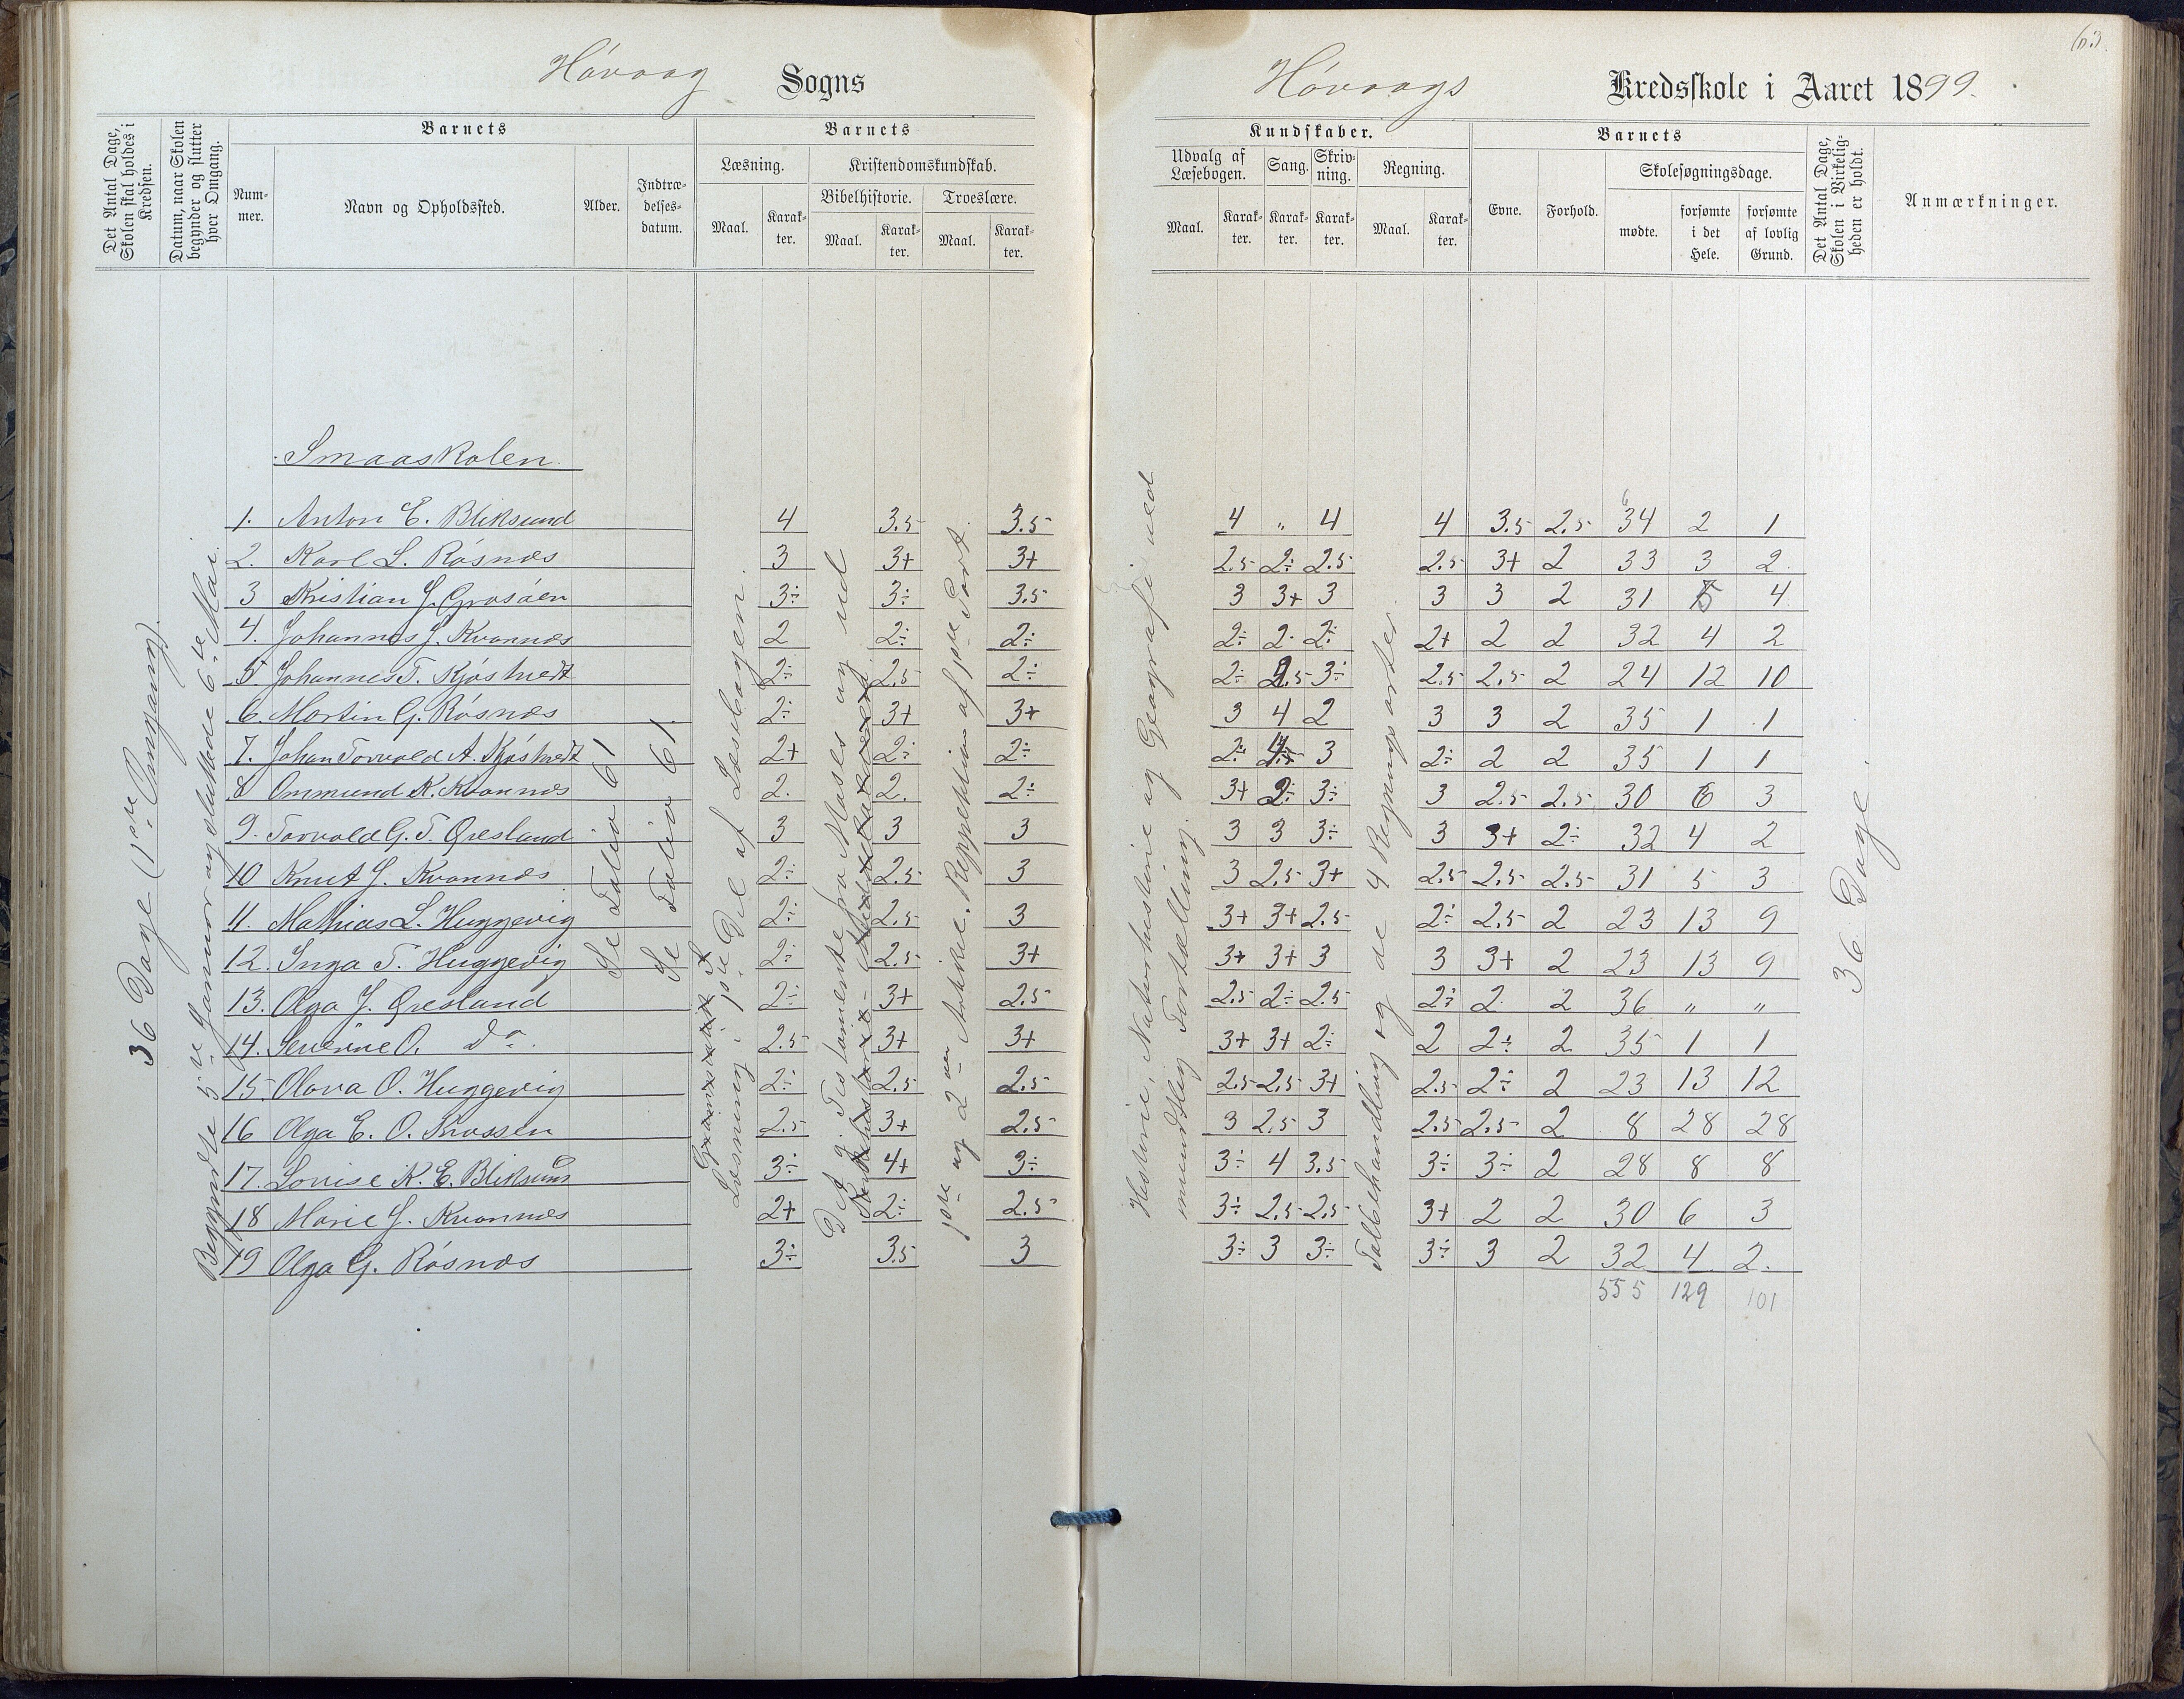 63.
Høvaag Sogns
Høvaags Kredsskole i Aaret 1899.
Det Antal Dage, Skolen skal holdes i Kredsen.
Datum, naar Skolen begynder og slutter hver Omgang.
Barnets
Nummer.
Navn og Opholdssted.
Alder.
Indtrædelsesdatum.
Barnets
Læsning.
Maal.
Karakter.
Kristendomskundskab.
Bibelhistorie.
Maal.
Karakter.
Troeslære.
Maal.
Karakter.
Kundskaber.
Udvalg af Læsebogen.
Maal.
Karakter.
Sang.
Karakter.
Skrivning.
Karakter.
Regning.
Maal.
Karakter.
Barnets
Evne.
Forhold.
Skolesøgningsdage.
mødte.
forsømte i det Hele.
forsømte af lovlig Grund.
Det Antal Dage, Skolen i Virkeligheden er holdt.
Anmærkninger.
36 Dage (1ste Omgang).
Begyndte 5te Januar og sluttede 6te Mai.
Smaaskolen.
Se Folio 61
Se Folio 61.
Læsning i 1ste Del af Læsebogen.
Det g. Testamente fra Moses og ud
1ste og 2den Artikel. Reppetition af 1ste Part.
Historie, Naturhistorie og Geografi med
mundtlig Fortælling.
Talbehandling og de 4 Regningsarter.
36 Dage.
1. Anton E. Bliksund 4 3.5 3.5 4 " 4 4 3.5 2.5 34 2 1
2. Karl L. Røsnæs 3 3+ 3+ 2.5 2÷ 2.5 2.5 3+ 2 33 3 2.
3 Kristian J. Grosåen 3÷ 3÷ 3.5 3 3+ 3 3 3 2 31 5 4.
4. Johannes J. Kvannæs 2 2÷ 2÷ 2÷ 2. 2÷ 2+ 2 2 32 4 2
5. Johannes T. Kjøstvedt 2÷ 2.5 2÷ 2÷ 2.5 3÷ 2.5 2.5 2 24 12 10
6. Martin G. Røsnæs 2÷ 3+ 3+ 3 4 2 3 3 2 35 1 1
7. Johan Torvald A. Kjøstvedt 2+ 2÷ 2÷ 2÷ 4 3 2÷ 2 2 35 1 1
8 Ommund K. Kvannæs 2. 2. 2÷ 3+ 2÷ 3÷ 3 2.5 2.5 30 6 3
9. Torvald G. T. Øresland 3 3 3 3 3 3÷ 3 3+ 2÷ 32 4 2
10 Knut J. Kvannæs 2÷ 2.5 3 3 2.5 3+ 2.5 2.5 2.5 31 5 3
11. Mathias L. Huggevig 2÷ 2.5 3 3+ 3+ 2.5 2÷ 2.5 2 23 13 9
12. Inga T. Huggevig 2÷ 2.5 3+ 3+ 3+ 3 3 3+ 2 23 13 9
13. Olga J. Øresland 2÷ 3+ 2.5 2.5 2÷ 2.5 2÷ 2 2 36 " "
14. Severine O. Do. 2.5 3+ 3+ 3+ 3+ 2÷ 2 2÷ 2 35 1 1
15. Olava O. Huggevig 2÷ 2.5 2.5 2.5 2.5 3+ 2.5 2÷ 2 23 13 12
16 Olga E. O. Knossen 2.5 3+ 2.5 3 2.5 3 2.5 2.5 2 8 28 28
17. Lovise K. E. Bliksund 3÷ 4+ 3÷ 3÷ 4 3.5 3÷ 3÷ 2 28 8 8
18 Marie J. Kvannæs 2+ 2÷ 2.5 3÷ 2.5 2.5 3+ 2 2 30 6 3
19 Olga G. Røsnæs 3÷ 3.5 3 3÷ 3 3÷ 3÷ 3 2 32 4 2.
555 129 101